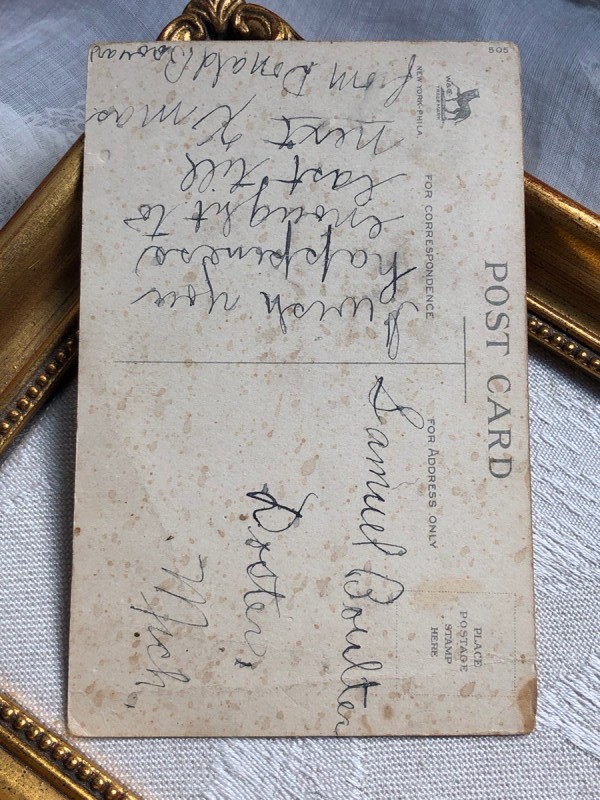 505
NEW YORK-PHILA.
POST CARD
FOR CORRESPONDENCE
FOR ADDRESS ONLY
PLACE
POSTAGE
STAMP
HERE
I wish you
happiness
enought to
last till
next Xmas
from Donald
Samuel Boulter
Doster,
Mich.